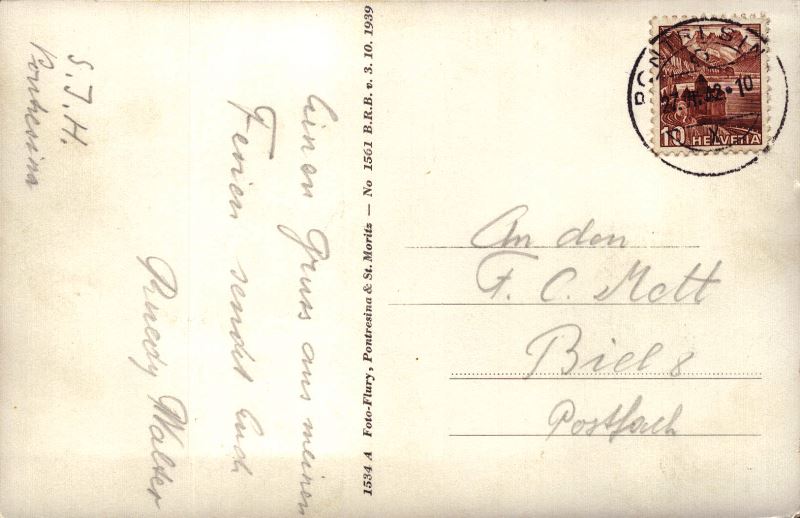 S.J.H.
Pontresina
Einen Gruss aus meinen
Ferien sendet Euch
Ruedy Walter
1534 A Foto-Flury, Pontresina & St. Moritz — No 1561 B.R.B. v. 3. 10. 1939
PONTRESINA
10
HELVETIA
An den
F. C. Mett
Biel 8
Postfach